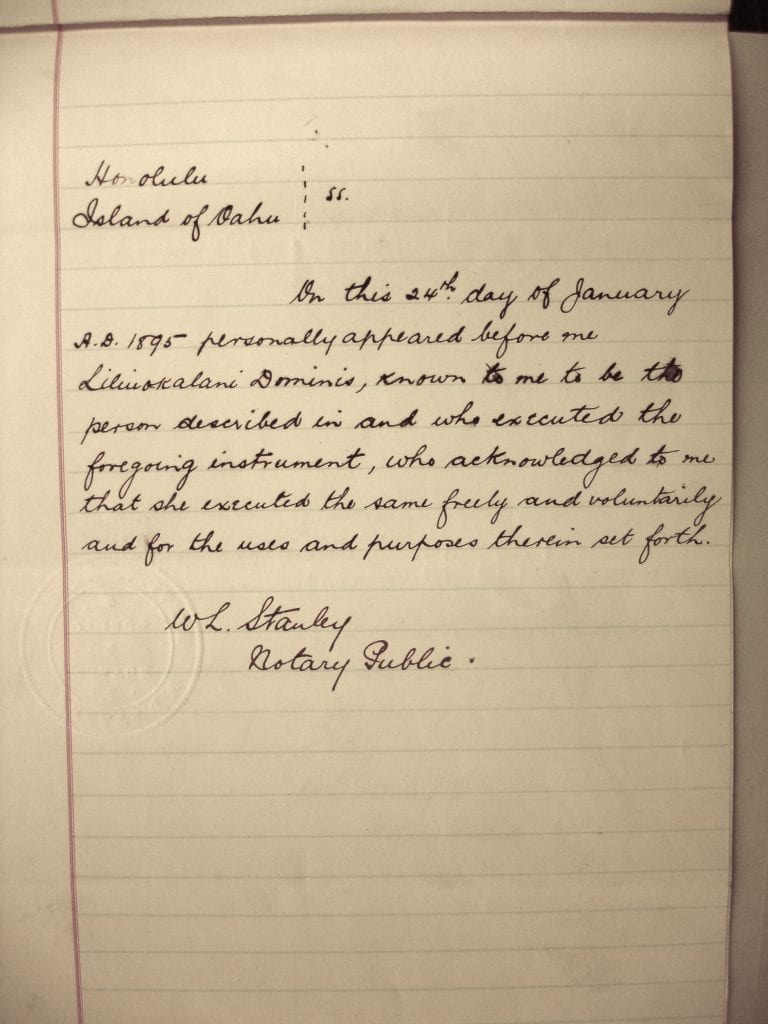 Honolulu
Island of Oahu ss.
On this 24th. day of January
A.D. 1895 personally appeared before me
Liliuokalani Dominis, known to me to be the
person described in and who executed the
foregoing instrument, who acknowledged to me
that she executed the same freely and voluntarily
and for the uses and purposes therein set forth.
W L. Stanley
Notary Public.